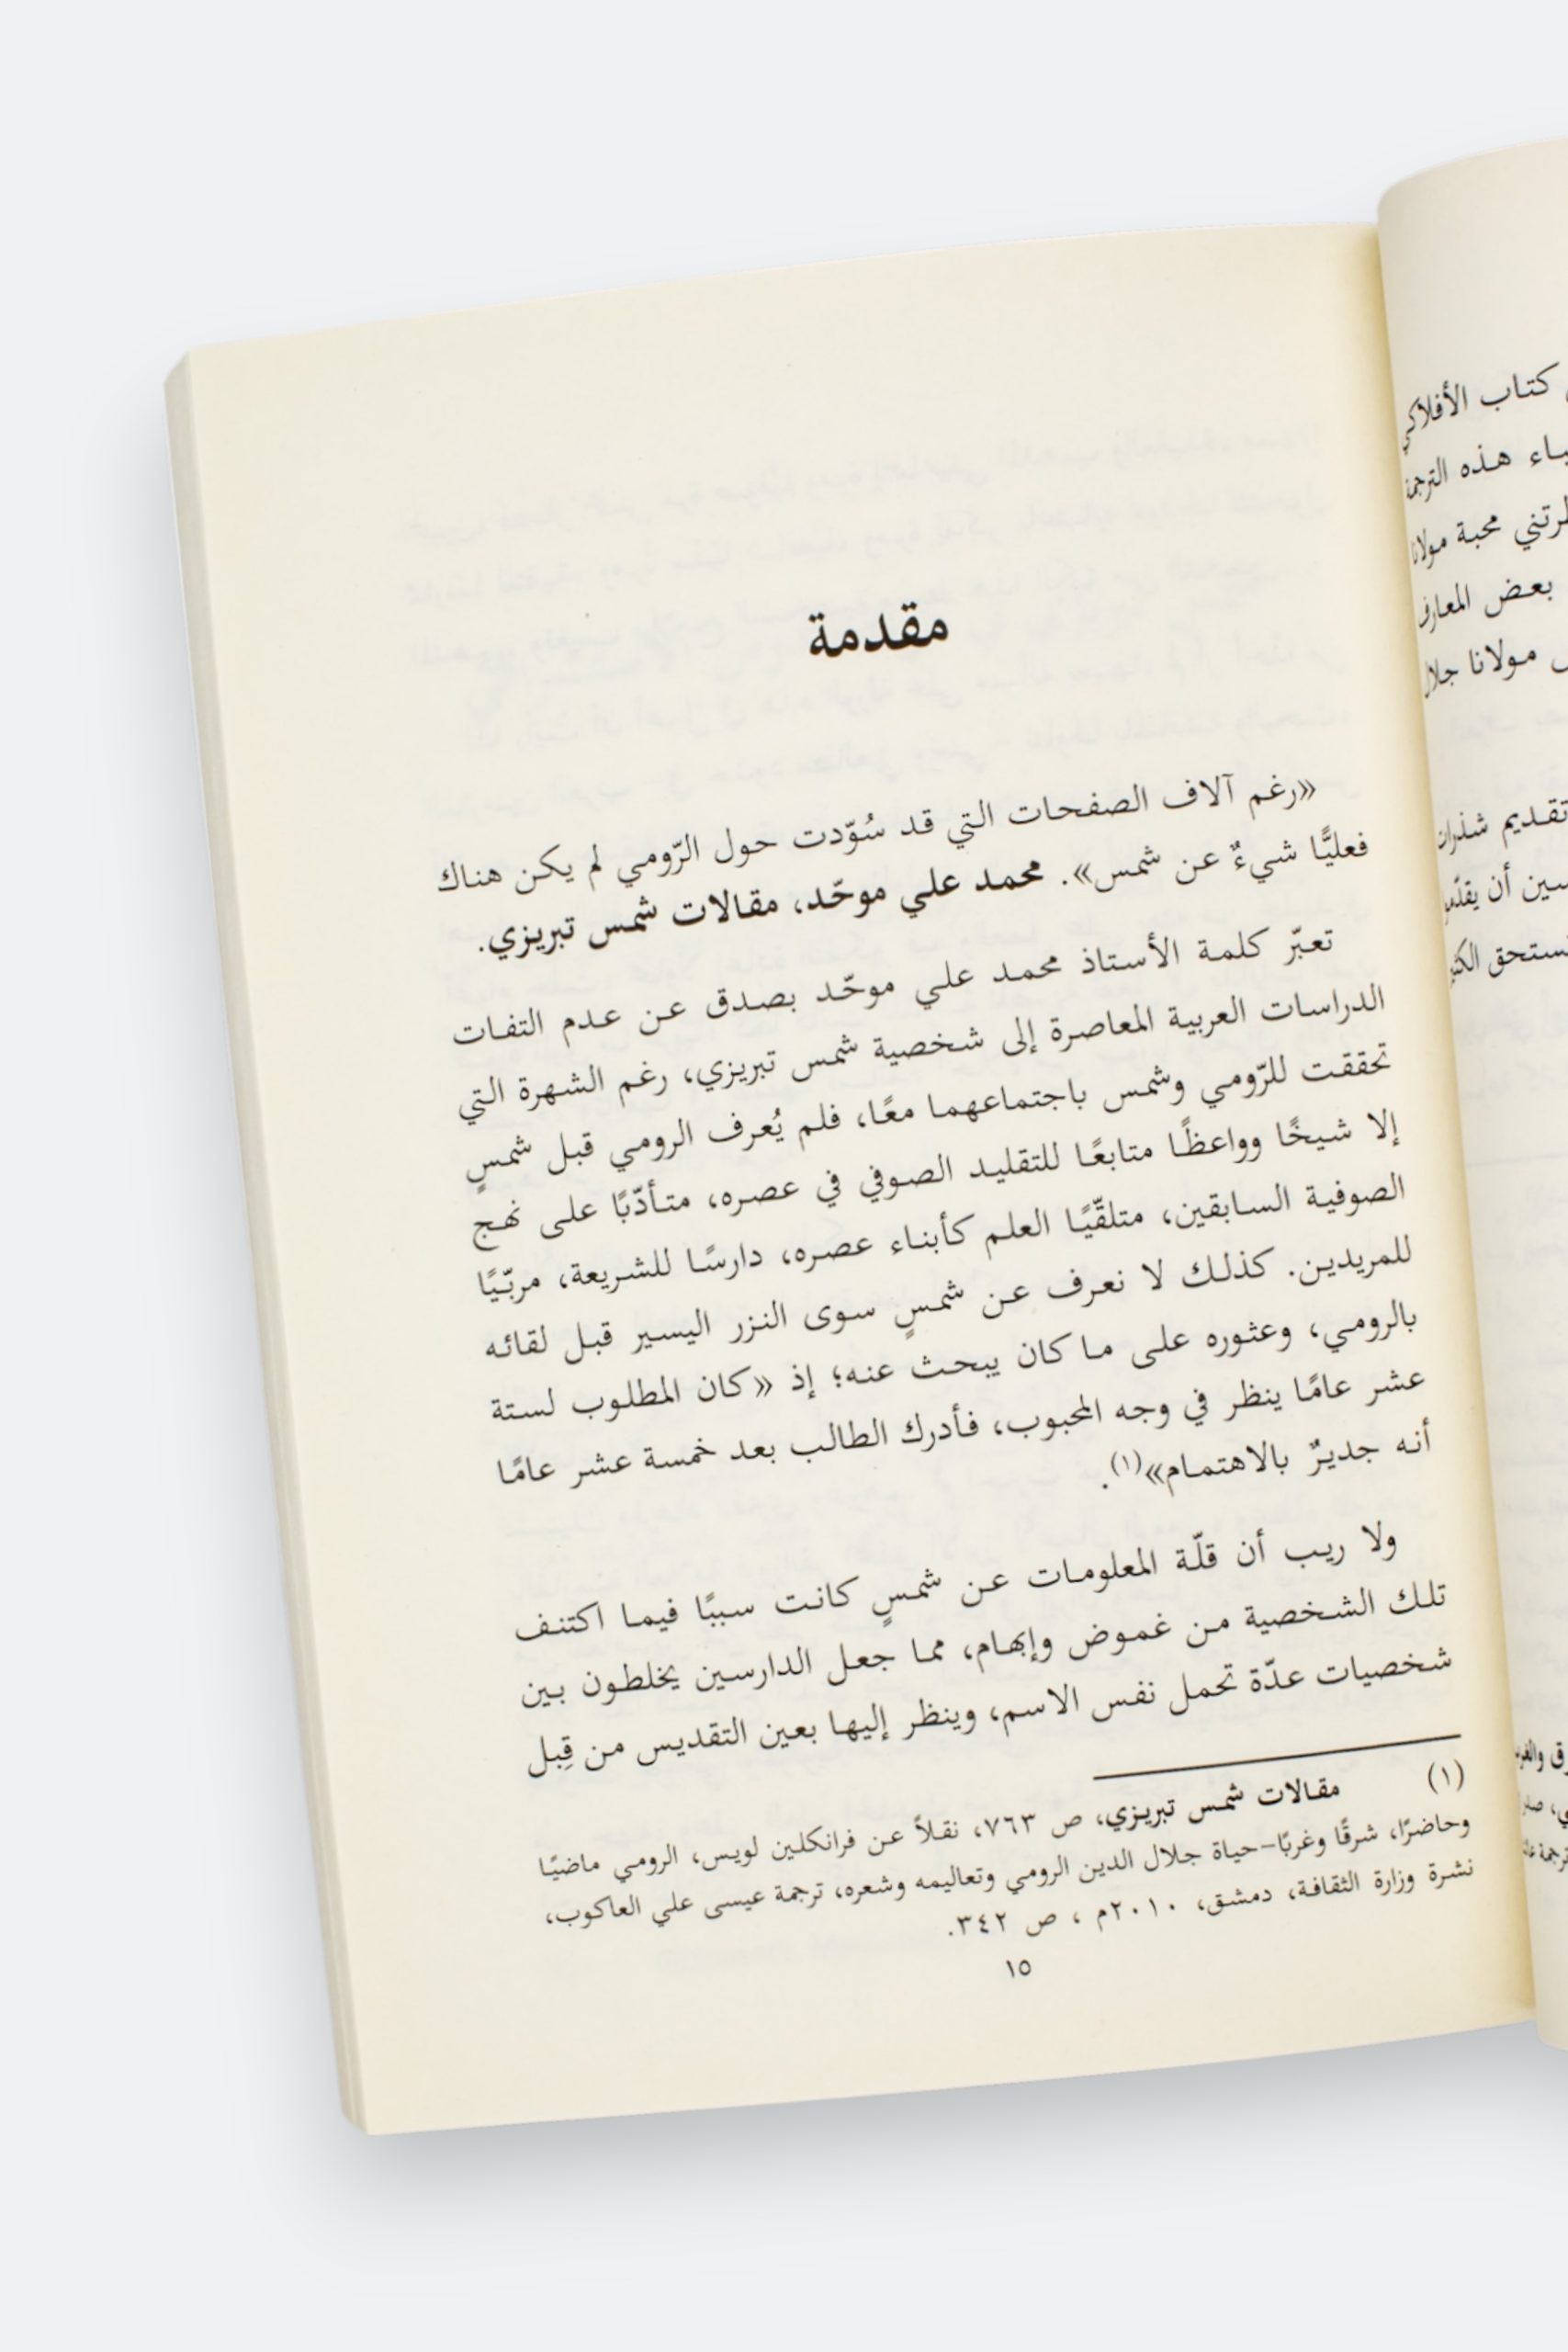 كتاب الأفلاكي
هذه الترجمة
محبة مولانا
بعض المعارف
مولانا جلال
تقديم شذرات
أن
مقدمة
«رغم آلاف الصفحات التي قد سُوّدت حول الرّومي لم يكن هناك
فعليًّا شيءٌ عن شمس». محمد علي موحّد، مقالات شمس تبريزي.
تعبّر كلمة الأستاذ محمد علي موحّد بصدق عن عدم التفات
الدراسات العربية المعاصرة إلى شخصية شمس تبريزي، رغم الشهرة التي
تحققت للرّومي وشمس باجتماعهما معًا، فلم يُعرف الرومي قبل شمسٍ
إلا شيخًا وواعظًا متابعًا للتقليد الصوفي في عصره، متأدّبًا على نهج
الصوفية السابقين، متلقّيًا العلم كأبناء عصره، دارسًا للشريعة، مربّيًا
للمريدين. كذلك لا نعرف عن شمسٍ سوى النزر اليسير قبل لقائه
بالرومي، وعثوره على ما كان يبحث عنه؛ إذ «كان المطلوب لستة
عشر عامًا ينظر في وجه المحبوب، فأدرك الطالب بعد خمسة عشر عامًا
أنه جديرٌ بالاهتمام»(١).
ولا ريب أن قلّة المعلومات عن شمسٍ كانت سببًا فيما اكتنف
تلك الشخصية من غموض وإبهام، مما جعل الدارسين يخلطون بين
شخصيات عدّة تحمل نفس الاسم، وينظر إليها بعين التقديس من قِبل
(١) مقالات شمس تبريزي، ص ٧٦٣، نقلاً عن فرانكلين لويس، الرومي ماضيًا
وحاضرًا، شرقًا وغربًا-حياة جلال الدين الرومي وتعاليمه وشعره، ترجمة عيسى علي العاكوب،
نشرة وزارة الثقافة، دمشق، ٢٠١٠م ، ص ٣٤٢.
١٥